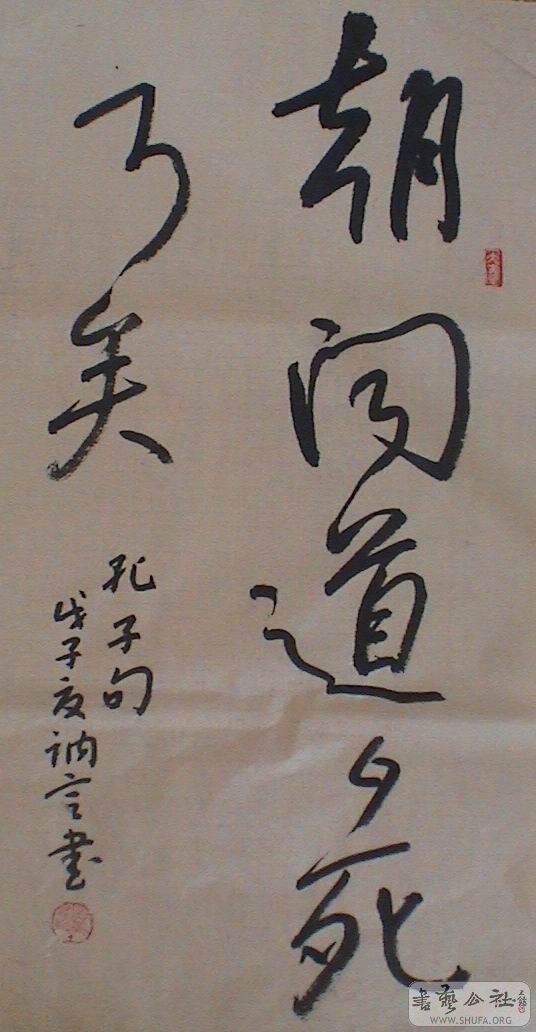 朝闻道夕死
可矣
孔子句
戊子夏讷言书
书艺公社
WWW.SHUFA.ORG